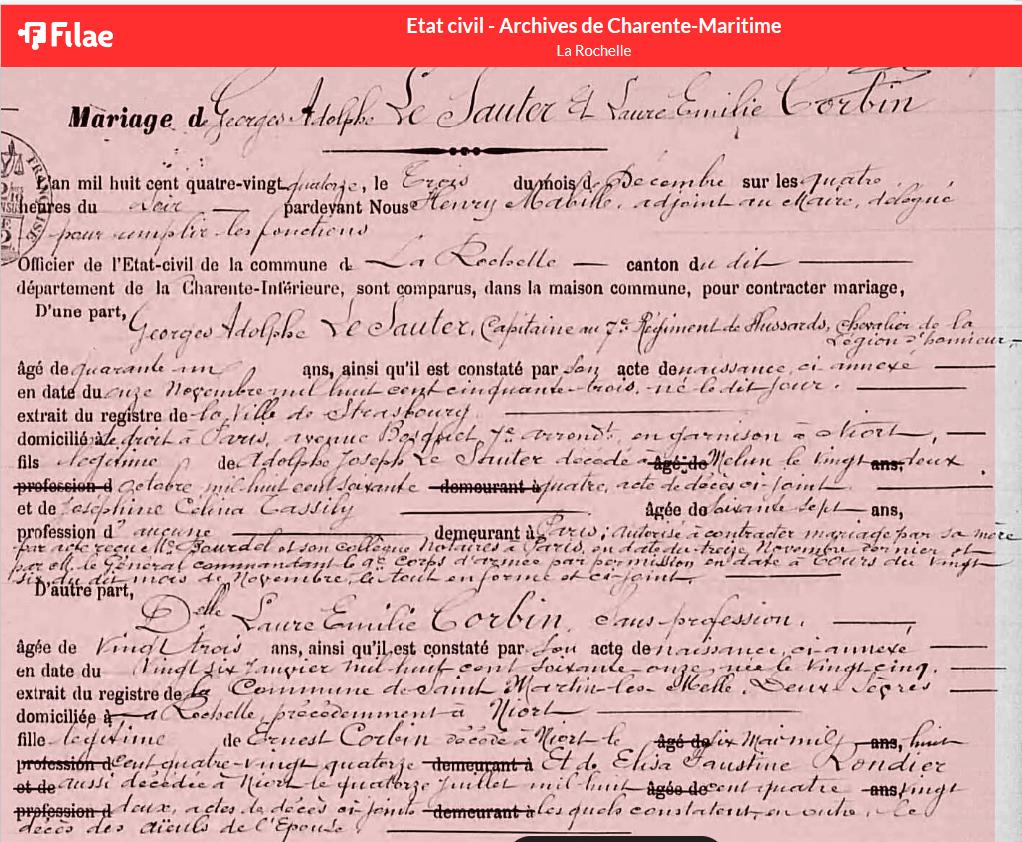 Filae
Etat civil - Archives de Charente-Maritime
La Rochelle
Mariage de Georges Adolphe Le Sauter Et Laure Emilie Corbin
L'an mil huit cent quatre-vingt quatorze, le Trois du mois de Décembre sur les quatre
heures du Soir pardevant Nous Henry Mabille, adjoint au Maire, délégué
pour remplir les fonctions
Officier de l'Etat-civil de la commune de La Rochelle canton du dit
département de la Charente-Inférieure, sont comparus, dans la maison commune, pour contracter mariage,
D'une part, Georges Adolphe Le Sauter, Capitaine au 7e Régiment de Hussards, Chevalier de la
Légion d'honneur,
âgé de quarante un ans, ainsi qu'il est constaté par son acte de naissance, ci annexé
en date du onze Novembre mil huit cent cinquante-trois, né le dit jour.
extrait du registre de la Ville de Strasbourg
domicilié de droit à Paris, avenue Bosquet 7e arrondt, en garnison à Niort,
fils légitime de Adolphe Joseph Le Sauter décédé à âgé de Melun le vingt ans, deux
profession d octobre mil huit cent soixante demeurant à quatre, acte de décès ci-joint.
et de Joséphine Célina Cassily âgée de soixante sept ans,
profession d' aucune demeurant à Paris; autorisé à contracter mariage par sa mère
par acte reçu Me Bourdel et son collègue Notaires à Paris, en date du treize Novembre dernier et
par M. le Général commandant le 9e corps d'armée par permission en date à Tours du vingt
six du dit mois de Novembre, le tout en forme et ci-joint.
D'autre part,
Delle Laure Emilie Corbin, sans profession.
âgée de Vingt trois ans, ainsi qu'il est constaté par son acte de naissance, ci-annexé
en date du Vingt six Janvier mil huit cent soixante-onze, née le Vingt cinq.
extrait du registre de la Commune de Saint Martin-les-Melle, Deux Sèvres
domiciliée à La Rochelle, précédemment à Niort
fille légitime de Ernest Corbin décédé à Niort le âgé de six Mai mil ans, huit
profession d cent quatre-vingt quatorze demeurant à Et de Elisa Faustine Rondier
et de aussi décédée à Niort le quatorze Juillet mil huit âgée de cent quatre ans vingt
profession d deux, actes de décès ci-joints demeurant à les quels constatent, en outre, le
décès des aïeuls de l'Epouse